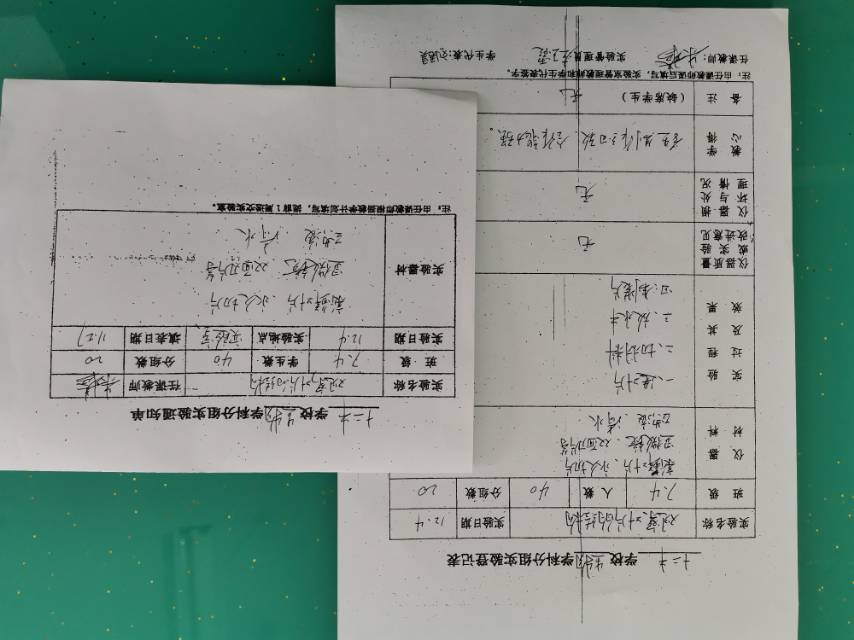 十二中 学校 生物 学科分组实验通知单
实验名称 观察叶片的结构 任课教师
班 级 7.4 学生数 40 分组数 20
实验日期 12.4 实验地点 实验室 填表日期 11.27
实验器材
新鲜叶片、永久切片
显微镜、双面刀片等
清水
注：由任课教师根据教学计划填写，提前1周送交实验室。
十二中 学校 生物 学科分组实验登记表
实验名称 观察叶片的结构 实验日期 12.4
班 级 7.4 人 数 40 分组数 20
仪 器 材 料
新鲜叶片、永久切片
显微镜、双面刀片等
清水
实 验 过 程 及 其 效 果
一、选叶片
二、切材料
三、放水中
四：制装片
仪器质量或实验改进意见 无
仪器损坏与处理情况 无
教 学 心 得 合作能力强。
备 注 （缺席学生） 无
注：由任课教师课后填写，实验室管理教师和学生代表签字。
任课教师： 实验管理员： 学生代表：